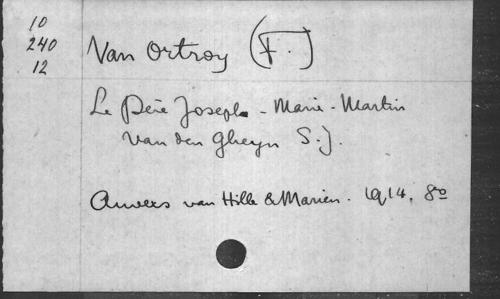 10
240
12
Van Ortroy (F.)
Le Père Joseph - Marie - Martin
Van den Gheyn S. J.
Anvers van Hille & Marien. 1914. 8º